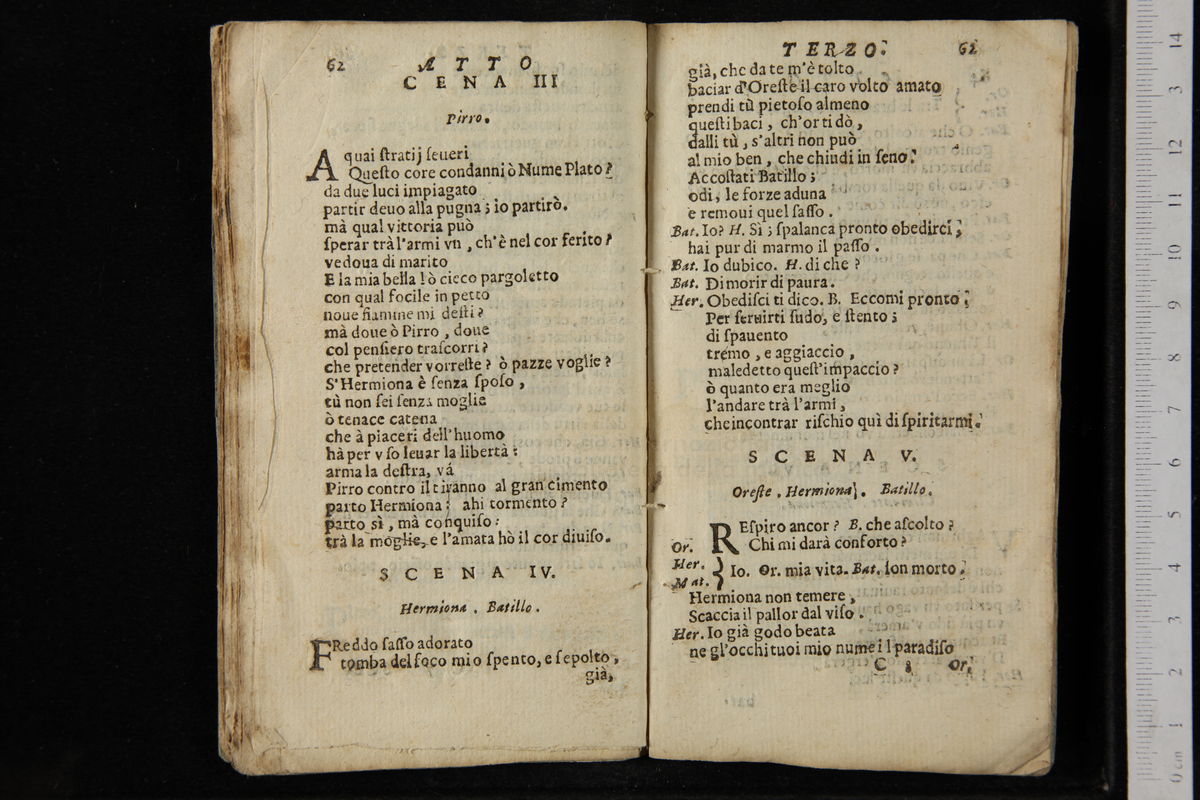 62 ATTO
CENA III
Pirro.
A quai ſtratij ſeueri
Queſto core condanni ò Nume Plato?
da due luci impiagato
partir deuo alla pugna; io partirò.
mà qual vittoria può
ſperar trà l'armi vn, ch'è nel cor ferito?
vedoua di marito
E la mia bella! ò cieco pargoletto
con qual focile in petto
noue fiamme mi deſti?
mà doue ò Pirro, doue
col penſiero traſcorri?
che pretender vorreſte? ò pazze voglie?
S'Hermiona è ſenza ſpoſo,
tù non ſei ſenza moglie
ò tenace catena
che à piaceri dell'huomo
hà per v ſo leuar la libertà:
arma la deſtra, vá
Pirro contro il tiranno al gran cimento
parto Hermiona: ahi tormento?
parto sì, mà conquiſo:
trà la moglie, e l'amata hò il cor diuiſo.
SCENA IV.
Hermiona. Batillo.
FReddo ſaſſo adorato
tomba del foco mio ſpento, e ſepolto,
già,
TERZO. 62
già, che da te m'è tolto
baciar d'Oreſte il caro volto amato
prendi tù pietoſo almeno
queſti baci, ch'or ti dò,
dalli tù, s'altri non può
al mio ben, che chiudi in ſeno.
Accoſtati Batillo;
odi, le forze aduna
e remoui quel ſaſſo.
Bat. Io? H. Sì; ſpalanca pronto obedirci;
hai pur di marmo il paſſo.
Bat. Io dubico. H. di che?
Bat. Di morir di paura.
Her. Obediſci ti dico. B. Eccomi pronto;
Per ſeruirti ſudo, e ſtento;
di ſpauento
tremo, e aggiaccio,
maledetto queſt'impaccio?
ò quanto era meglio
l'andare trà l'armi,
che incontrar riſchio quì di ſpiritarmi.
SCENA V.
Oreſte. Hermiona. Batillo.
Or. REſpiro ancor? B. che aſcolto?
Chi mi darà conforto?
Her.
Mat. } Io. Or. mia vita. Bat. ſon morto.
Hermiona non temere,
Scaccia il pallor dal viſo.
Her. Io già godo beata
ne gl'occhi tuoi mio nume il paradiſo
C 8 Or.